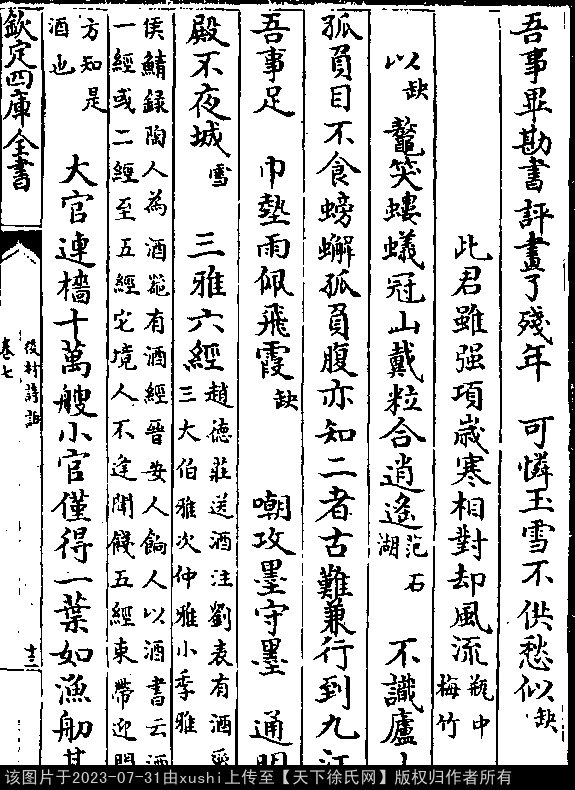 吾事畢勘書評畫了殘年 可憐玉雪不供愁似缺
此君雖强項歲寒相對却風流瓶中梅竹
以缺 鼇笑螻蟻冠山戴粒合逍遙范石湖 不識廬
孤負目不食螃蠏孤負腹亦知二者古難兼行到九江
吾事足 巾墊雨佩飛霞缺 嘲攻墨守墨 通明
殿不夜城雪 三雅六經趙德莊送酒注劉表有酒器三大伯雅次仲雅小季雅
侯鯖錄陶人為酒瓻有酒經晉安人餉人以酒書云酒
一經或二經至五經它境人不達聞餞五經東帶迎門
方知是酒也 大官連檣十萬艘小官僅得一葉如漁舠其
欽定四庫全書
後村詩話
卷七
十三
该图片于2023-07-31由xushi上传至【天下徐氏网】版权归作者所有